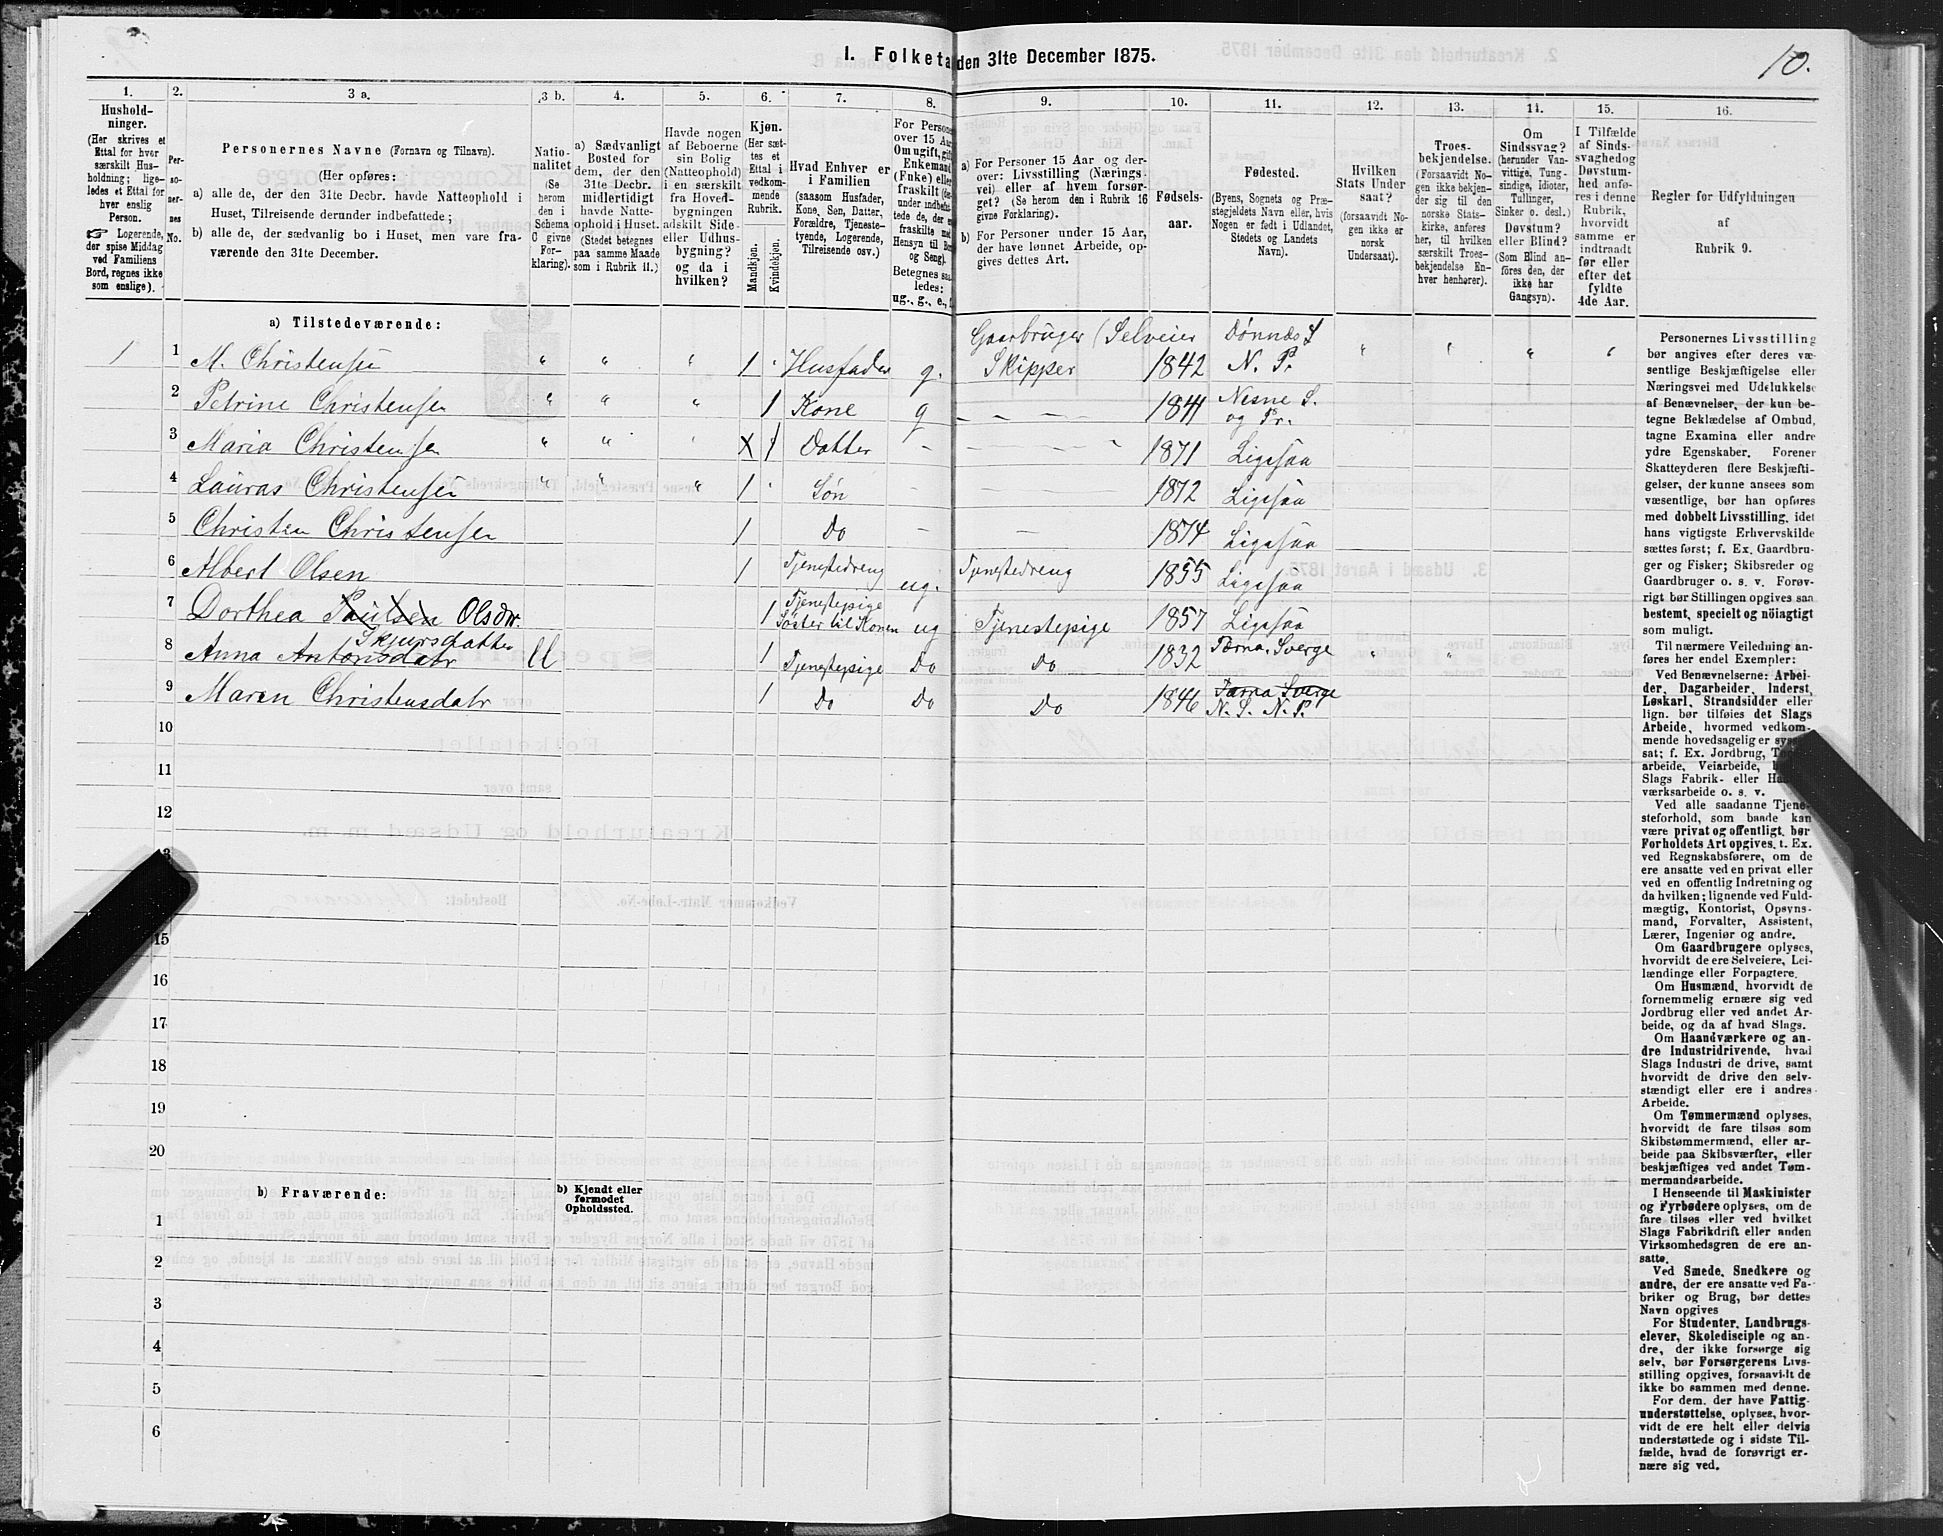 10.
I. Folketa den 31te December 1875.
1. 2. 3 a. 3 b. 4. 5. 6. 7. 8. 9. 10. 11. 12. 13. 14. 15. 16.
Hushold-
ninger.
(Her skrives et
Ettal for hver
særskilt Hus-
holdning; lige-
ledes et Ettal for
hver enslig
Person.
☞ Logerende,
der spise Middag
ved Familiens
Bord, regnes ikke
som enslige).
Per-
so-
ner-
nes
No.
Personernes Navne (Fornavn og Tilnavn).
(Her opføres:
a) alle de, der den 31te Decbr. havde Natteophold i
Huset, Tilreisende derunder indbefattede;
b) alle de, der sædvanlig bo i Huset, men vare fra-
værende den 31te December.
Natio-
nalitet
(Se
herom
den i
Schema
C givne
For-
klaring).
a) Sædvanligt
Bosted for
dem, der den
31te Decbr.
midlertidigt
havde Natte-
ophold i Huset.
(Stedet betegnes
paa samme Maade
som i Rubrik 11.)
Havde nogen
af Beboerne
sin Bolig
(Natteophold)
i en særskilt
fra Hoved-
bygningen
adskilt Side-
eller Udhus-
bygning?
og da i
hvilken?
Kjøn.
(Her sæt-
tes et
Ettal i
vedkom-
mende
Rubrik.
Mandkjøn.
Kvindekjøn.
Hvad Enhver er
i Familien
(saasom Husfader,
Kone, Søn, Datter,
Forældre, Tjeneste-
tyende, Logerende,
Tilreisende osv.)
For Persone
over 15 Aar
Om ugift, gift
Enkemand
(Enke) eller
fraskilt
Betegnes saa
ledes:
ug., g., e.,
a) For Personer 15 Aar og der-
over: Livsstilling (Nærings-
vei) eller af hvem forsør-
get? (Se herom den i Rubrik 16
givne Forklaring).
b) For Personer under 15 Aar,
der have lønnet Arbeide, op-
gives dettes Art.
Fødsels-
aar.
Fødested.
(Byens, Sognets og Præ-
stegjeldets Navn eller, hvis
Nogen er født i Udlandet,
Stedets og Landets
Navn).
Hvilken
Stats Under
saat?
(forsaavidt No-
gen ikke er
norsk
Undersaat).
Troes-
bekjendelse.
(Forsaavidt No-
gen ikke bekjen-
der sig til den
norske Stats-
kirke, anføres
her, til hvilken
særskilt Troes-
bekjendelse En-
hver henhører).
Om
Sindssvag?
(herunder Van-
vittige, Tung-
sindige, Idioter,
Tullinger,
Sinker o. desl.)
Døvstum?
eller Blind?
(Som Blind an-
føres den, der
ikke har
Gangsyn).
I Tilfælde
af Sinds-
svaghedog
Døvstum-
hed anfø-
res i denne
Rubrik,
hvorvidt
samme er
indtraadt
før eller
efter det
fyldte
4de Aar.
Regler for Udfyldningen
af
Rubrik 9.
a) Tilstedeværende:
Gaarbruger (Selveier Dønnæs S
1 1 M. Christensen " " " 1 Husfader g. Skipper 1842 N. P. " " "
2 Petrine Christensen " " " 1 Kone g — 1841 Nesne S.
og Pr.
3 Maria Christensen " " X 1 Datter — 1871 Ligesaa
4 Lauras Christensen " " " 1 Søn — 1872 Ligesaa
5 Christen Christensen 1 Do — 1874 Ligesaa
6 Albert Olsen 1 Tjenstedreng ug. Tjenstedreng 1855 Ligesaa
7 Dorthea Paulsen Olsdtr. 1 Tjenstepige
Söster til Konen ug Tjenstepige 1857 Ligesaa
8 Anna Antonsdatr ll 1 Tjenstepige Do Do 1832 Tærna, Sverge
9 Maren Christensdatr 1 Do Do Do 1846 Tærna Sverge
N. S. N. P.
10
11
12
15
16
17
18
19
20
b) Fraværende:
b) Kjendt eller
formodet
Opholdssted.
1
2
3
4
5
6
Personernes Livsstilling
bør angives efter deres væ-
sentlige Beskjæftigelse eller
Næringsvei med Udelukkelse
af Benævnelser, der kun be-
tegne Beklædelse af Ombud,
tagne Examina eller andre
ydre Egenskaber. Forener
Skatteyderen flere Beskjæfti-
gelser, der kunne ansees som
væsentlige, bør han opføres
med dobbelt Livsstilling, idet
hans vigtigste Erhvervskilde
sættes først; f. Ex. Gaardbru-
ger og Fisker; Skibsreder og
Gaardbruger o. s. v. Forøv-
rigt bør Stillingen opgives saa
bestemt, specielt og nöiagtigt
som muligt.
Til nærmere Veiledning an-
føres her endel Exempler:
Ved Benævnelserne: Arbei-
der, Dagarbeider, Inderst,
Løskarl, Strandsidder eller
lign. bør tilføies det Slags
Arbeide, hvormed vedkom-
mende hovedsagelig er
sat; f. Ex. Jordbrug,
arbeide, Veiarbeide,
Slags Fabrik- eller
værksarbeide o. s. v.
Ved alle saadanne Tjene-
steforhold, som baade kan
være privat og offentligt, bør
Forholdets Art opgives, t. Ex.
ved Regnskabsførere, om de
ere ansatte ved en privat eller
ved en offentlig Indretning og
da hvilken; lignende ved Fuld-
mægtig, Kontorist, Opsyns-
mand, Forvalter, Assistent,
Lærer, Ingeniør og andre.
Om Gaardbrugere oplyses,
hvorvidt de ere Selveiere, Lei-
lændinge eller Forpagtere.
Om Husmænd, hvorvidt de
fornemmelig ernære sig ved
Jordbrug eller ved andet Ar-
beide, og da af hvad Slags.
Om Haandværkere og an-
dre Industridrivende, hvad
Slags Industri de drive, samt
hvorvidt de drive den selv-
stændigt eller ere i andres
Arbeide.
Om Tømmermænd oplyses,
hvorvidt de fare tilsøs som
Skibstømmermænd, eller ar-
beide paa Skibsværfter, eller
beskjæftiges ved andet Tøm-
mermandsarbeide.
I Henseende til Maskinister
og Fyrbødere oplyses, om de
fare tilsøs eller ved hvilket
Slags Fabrikdrift eller anden
Virksomhedsgren de ere an-
satte.
Ved Smede, Snedkere og
andre, der ere ansatte ved Fa-
briker og Brug, bør dettes
Navn opgives
For Studenter, Landbrugs-
elever, Skoledisciple og an-
dre, der ikke forsørge sig
selv, bør Forsørgerens Livs-
stilling opgives, forsaavidt de
ikke bo sammen med denne.
For dem. der have Fattig-
understøttelse, oplyses, hvor-
vidt de ere helt eller delvis
understøttede og i sidste Til-
fælde, hvad de forøvrigt er-
nære sig ved.